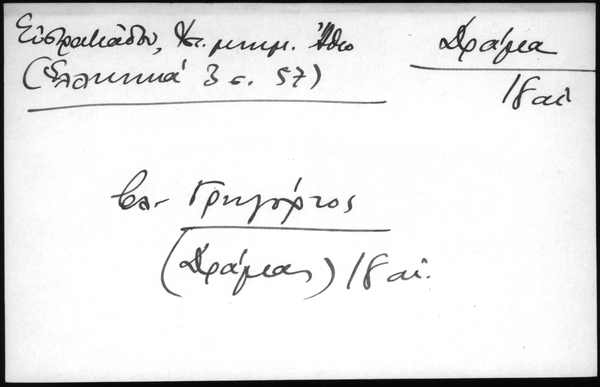 Εὐστρατιάδου, Ἱστ. μνημ. Ἄθω
(Ἑλληνικά 3 σ. 57)
Δράμα
18 αἰ
Γρηγόριος
(Δράμας) 18 αἰ.